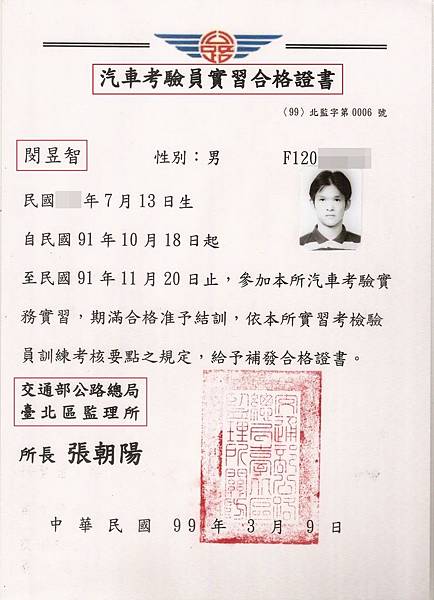 汽車考驗員實習合格證書
〈99〉北監字第0006 號
閔昱智 性別：男 F120
民國 年7月13日生
自民國91年10月18日起
至民國91年11月20日止，參加本所汽車考驗實
務實習，期滿合格准予結訓，依本所實習考檢驗
員訓練考核要點之規定，給予補發合格證書。
交通部公路總局
臺北區監理所
所長 張朝陽
交通部公路
總局臺北區
監理所關防
中華民國 99 年 3 月 9 日